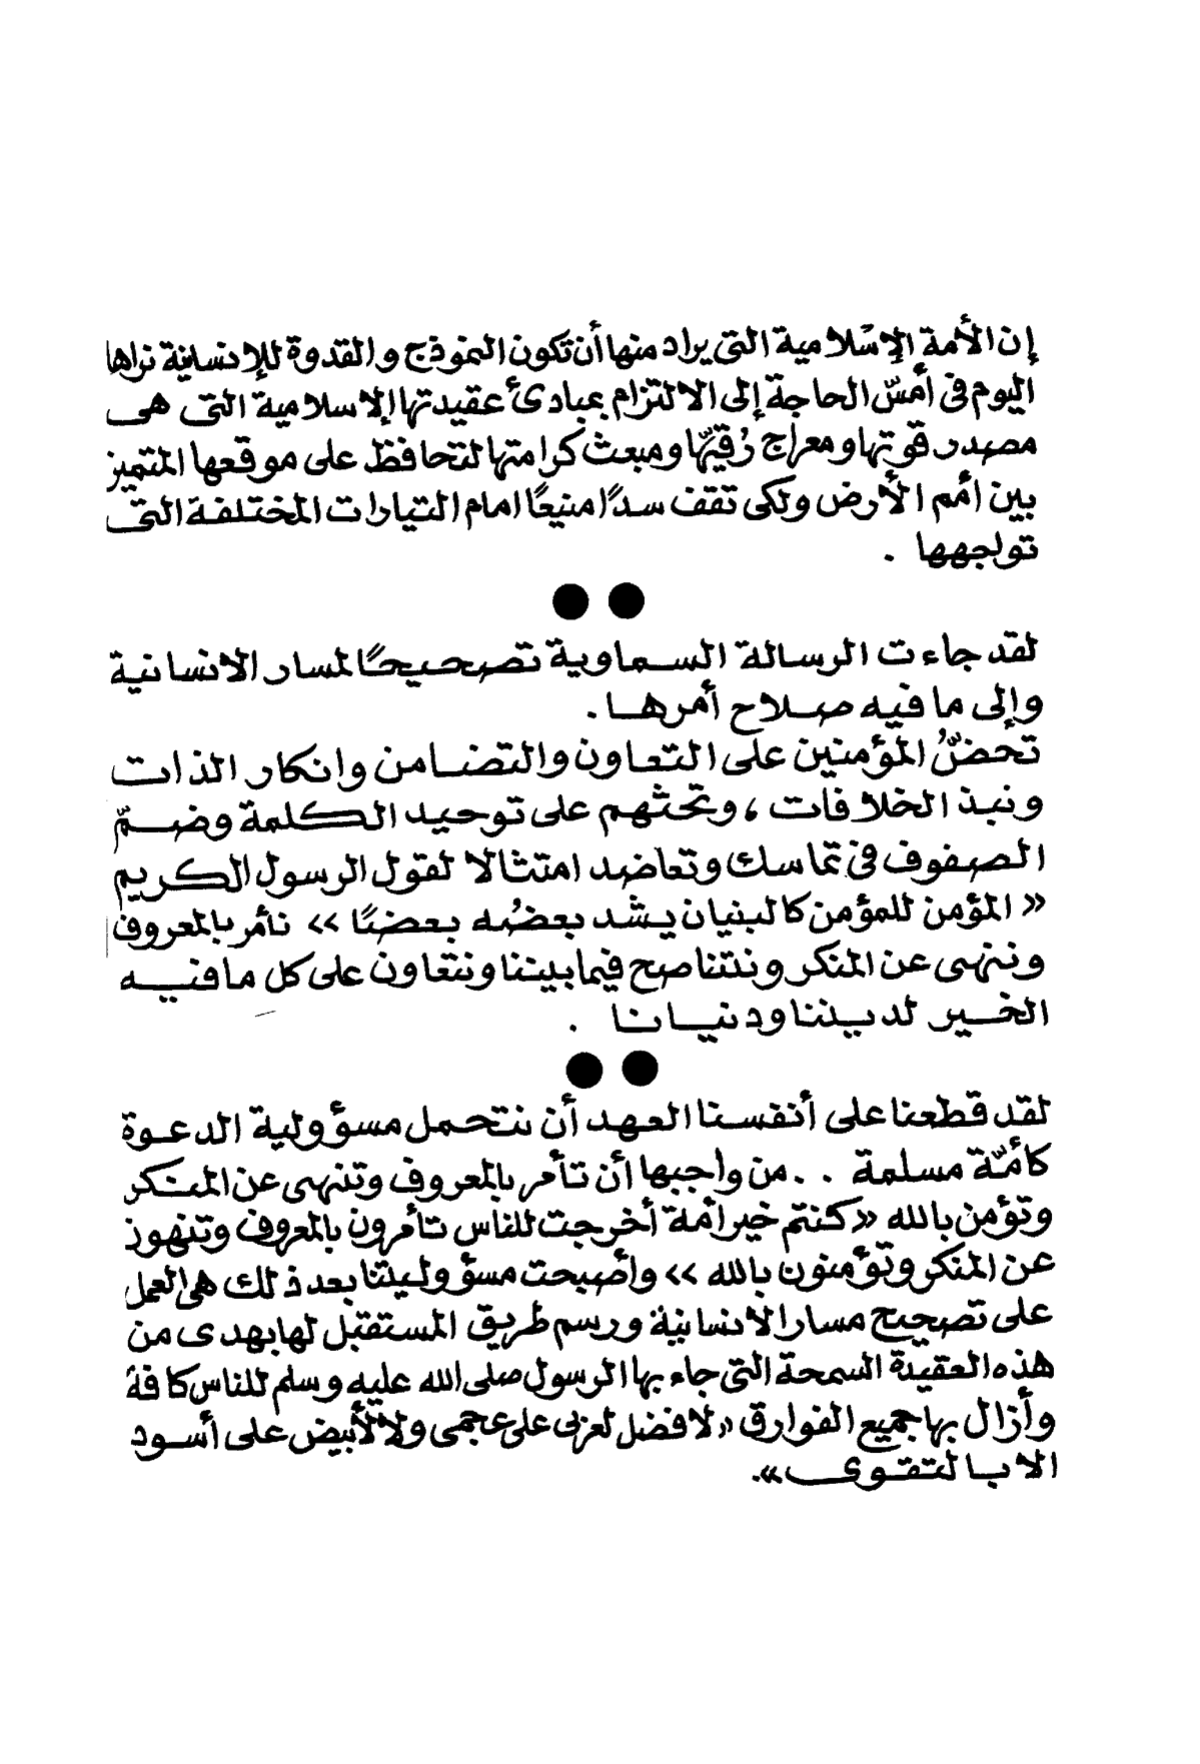 إن الأمة الإسلامية التى يراد منها أن تكون النموذج والقدوة للإنسانية نراها
اليوم فى أمسّ الحاجة إلى الالتزام بمبادئ عقيدتها الإسلامية التى هى
مصدر قوتها ومعراج رُقيّها ومبعث كرامتها لتحافظ على موقعها المتميز
بين أمم الأرض ولكى تقف سدًا منيعًا امام التيارات المختلفة التى
تواجهها .
● ●
لقد جاءت الرسالة السماوية تصحيحًا لمسار الانسانية
وإلى ما فيه صلاح أمرها .
تحضُّ المؤمنين على التعاون والتضامن وانكار الذات
ونبذ الخلافات ، وتحثهم على توحيد الكلمة وضمّ
الصفوف فى تماسك وتعاضد امتثالا لقول الرسول الكريم
« المؤمن للمؤمن كالبنيان يشد بعضُه بعضًا » نأمر بالمعروف
وننهى عن المنكر ونتناصح فيما بيننا ونتعاون على كل ما فيه
الخير لديننا ودنيانا .
● ●
لقد قطعنا على أنفسنا العهد أن نتحمل مسؤولية الدعوة
كأمّة مسلمة . . من واجبها أن تأمر بالمعروف وتنهى عن المنكر
وتؤمن بالله « كنتم خير أمة أخرجت للناس تأمرون بالمعروف وتنهون
عن المنكر وتؤمنون بالله » وأصبحت مسؤوليتنا بعد ذلك هى العمل
على تصحيح مسار الانسانية ورسم طريق المستقبل لها بهدى من
هذه العقيدة السمحة التى جاء بها الرسول صلى الله عليه وسلم للناس كافة
وأزال بها جميع الفوارق « لا فضل لعربى على عجمى ولا لأبيض على أسود
الا بالتقوى ».